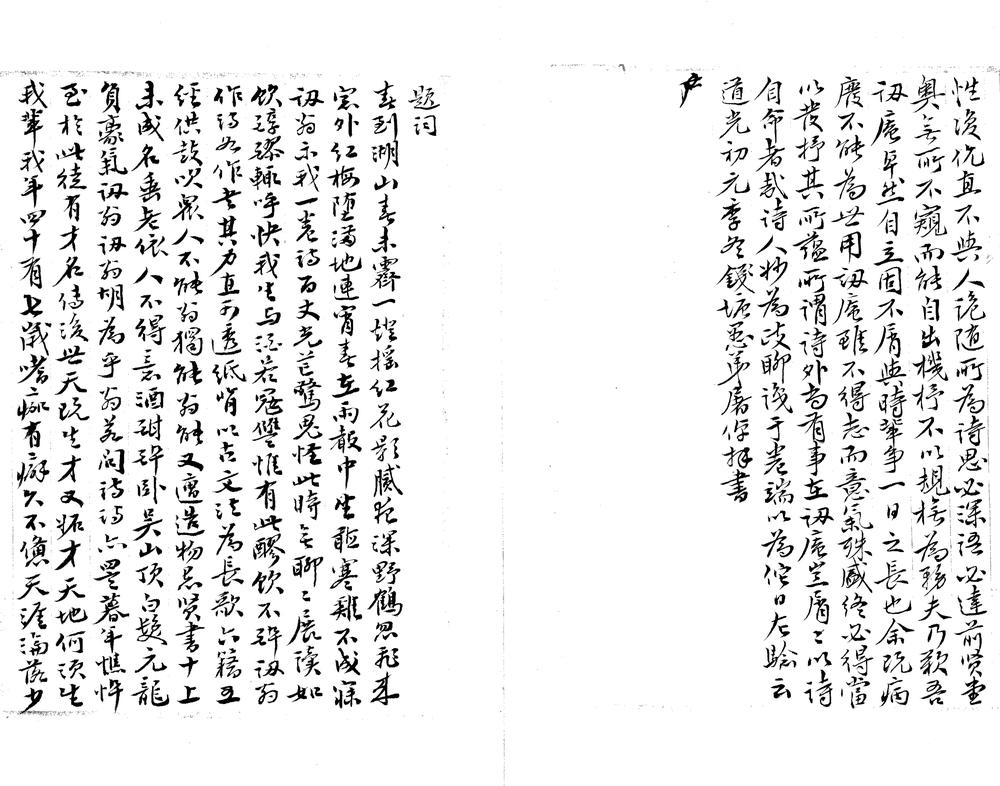 性復伉直不與人詭随所為詩思必深語必達前贤堂
奥無所不窺而能自出機杼不以規橅為務夫乃歎吾
訒庵卓然自立固不屑與時輩争一日之長也余既病
廢不能為世用訒庵雖不得志而意氣殊盛終必得當
以發抒其所蕴所謂诗外尚有事在訒庵豈屑屑以诗
自命者哉诗人妙為此聊識于卷端以為他日左驗云
道光初元季冬錢塘愚弟屠倬拜書
題詞
春到湖山春未霽一燈摇红花影膩夜深野鶴忽飛来
窓外红梅堕满地連宵春在雨聲中坐聽寒雞不成寐
訒翁示我一卷詩百丈光芒驚鬼怪此時無聊聊展讀如
飲醇醪輒呼快我生与酒若寇讐惟有此醪飲不醉訒翁
作詩如作書其力直可透纸背以古文法為長歌六籍五
經供鼓吹眾人不能翁獨能翁能又遭造物忌贤書十上
未成名垂老依人不得意酒酣醉卧吴山顶白髮元龍
負豪氣訒翁訒翁胡為乎翁若问詩詩亦累暮年憔悴
至於此徒有才名傳後世天既生才又妬才天地何须生
我輩我年四十有七歲嗜痂有癖久不憊天涯淪落少